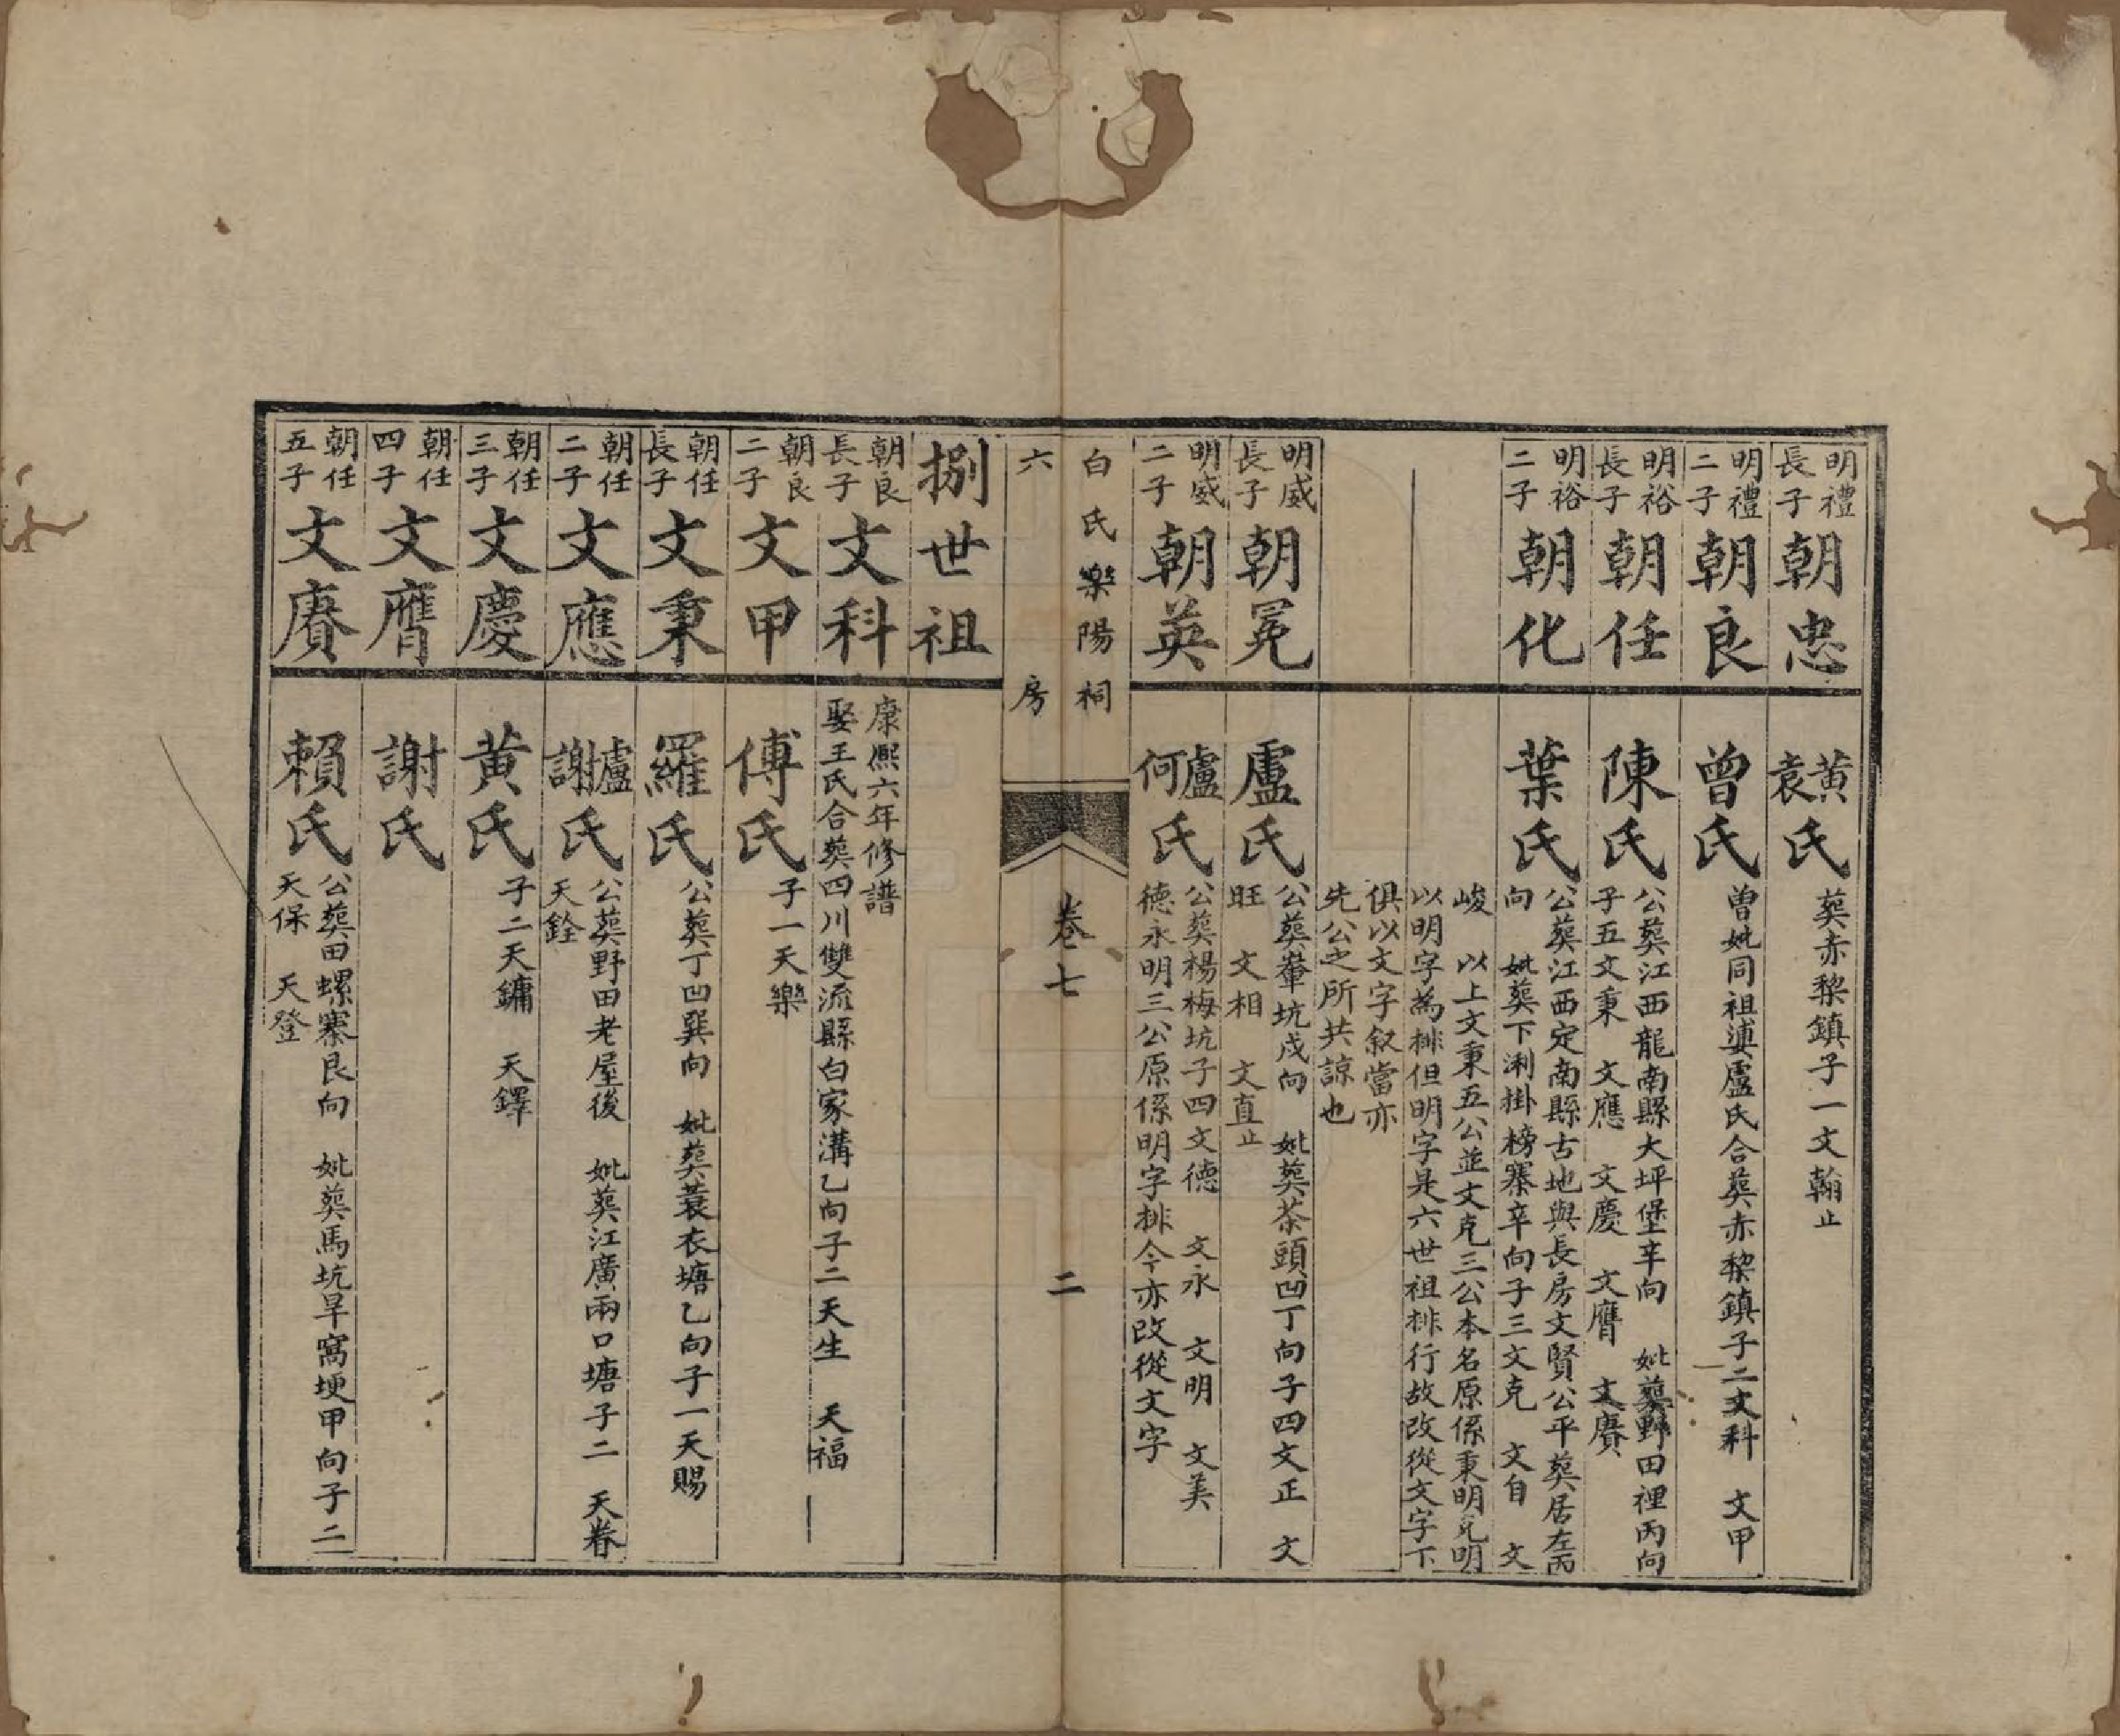 明禮
長子
朝忠
黄
袁
氏
葬赤黎鎮子一文翰止
明禮
二子
朝良
曾氏
曾妣同祖婆盧氏合葬赤黎鎮子二文科　文甲
明裕
長子
朝任
陳氏
公葬江西龍南縣大坪堡辛向　妣葬野田裡丙向
子五文秉　文應　文慶　文膺　文賡
明裕
二子
朝化
葉氏
公葬江西定南縣古地與長房文賢公平葬居左丙
向　妣葬下浰掛榜寨辛向子三文克　文自　文
峻　以上文秉五公並文克三公本名原係秉明克明
以明字為排但明字是六世祖排行故改從文字下
俱以文字叙當亦
先公之所共諒也
明威
長子
朝冕
盧氏
公葬輋坑戌向　妣葬茶頭凹丁向子四文正　文
旺　文相　文直止
明威
二子
朝英
盧
何
氏
公葬楊梅坑子四文德　文永　文明　文美
德永明三公原係明字排今亦改從文字
白氏樂陽祠
六房
卷七
二
捌世祖
朝良
長子
文科
康熙六年修譜
娶王氏合葬四川雙流縣白家溝乙向子二天生　天福
朝良
二子
文甲
傅氏
子一天樂
朝任
長子
文秉
羅氏
公葬丁凹巽向　妣葬蓑衣塘乙向子一天賜
朝任
二子
文應
盧
謝
氏
公葬野田老屋後　妣葬江廣兩口塘子二　天眷
天銓
朝任
三子
文慶
黄氏
子二天鏞　天鐸
朝任
四子
文膺
謝氏
朝任
五子
文賡
賴氏
公葬田螺寨艮向　妣葬馬坑旱窩埂甲向子二
天保　天登